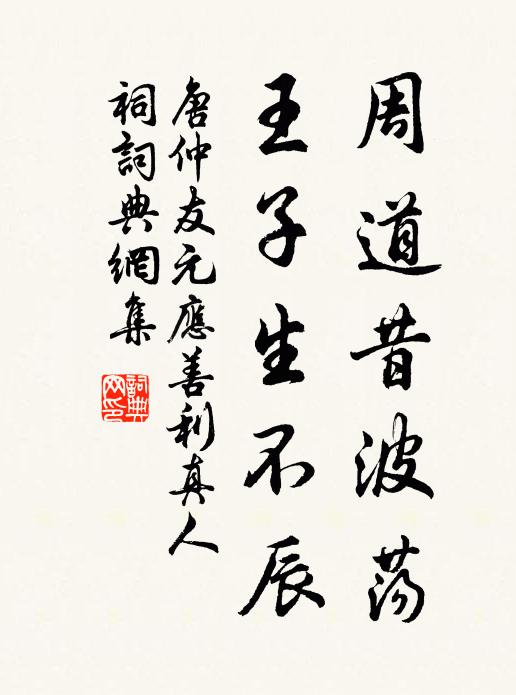 周道昔波荡
王子生不辰
唐仲友元應善利真人
祠詞典網集
詞典
网印